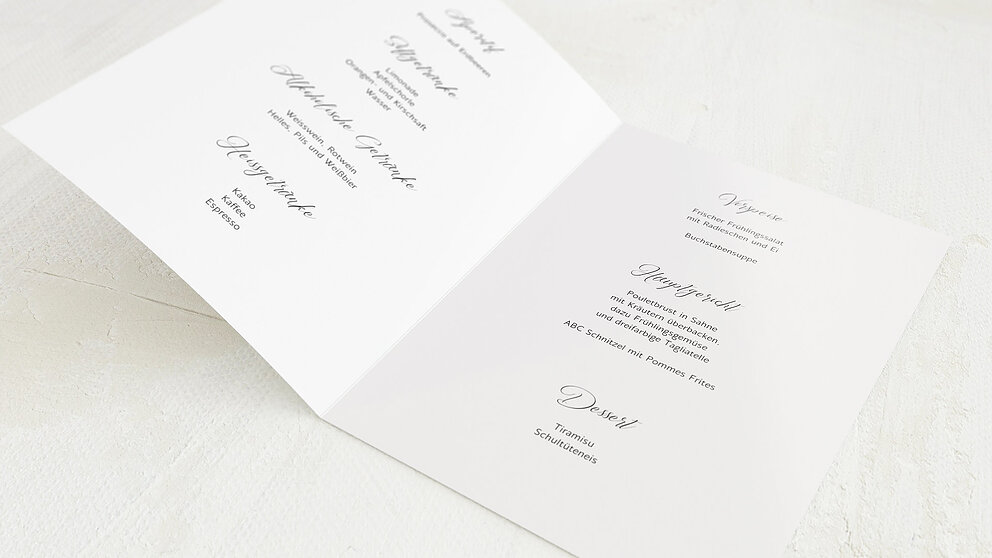 Aperitif
Prosecco auf Erdbeeren
Softgetränke
Limonade
Apfelschorle
Orangen- und Kirschsaft
Wasser
Alkoholische Getränke
Weisswein, Rotwein
Helles, Pils und Weißbier
Heissgetränke
Kakao
Kaffee
Espresso
Vorspeise
Frischer Frühlingssalat
mit Radieschen und Ei
Buchstabensuppe
Hauptgericht
Pouletbrust in Sahne
mit Kräutern überbacken.
dazu Frühlingsgemüse
und dreifarbige Tagliatelle
ABC Schnitzel mit Pommes Frites
Dessert
Tiramisu
Schultüteneis